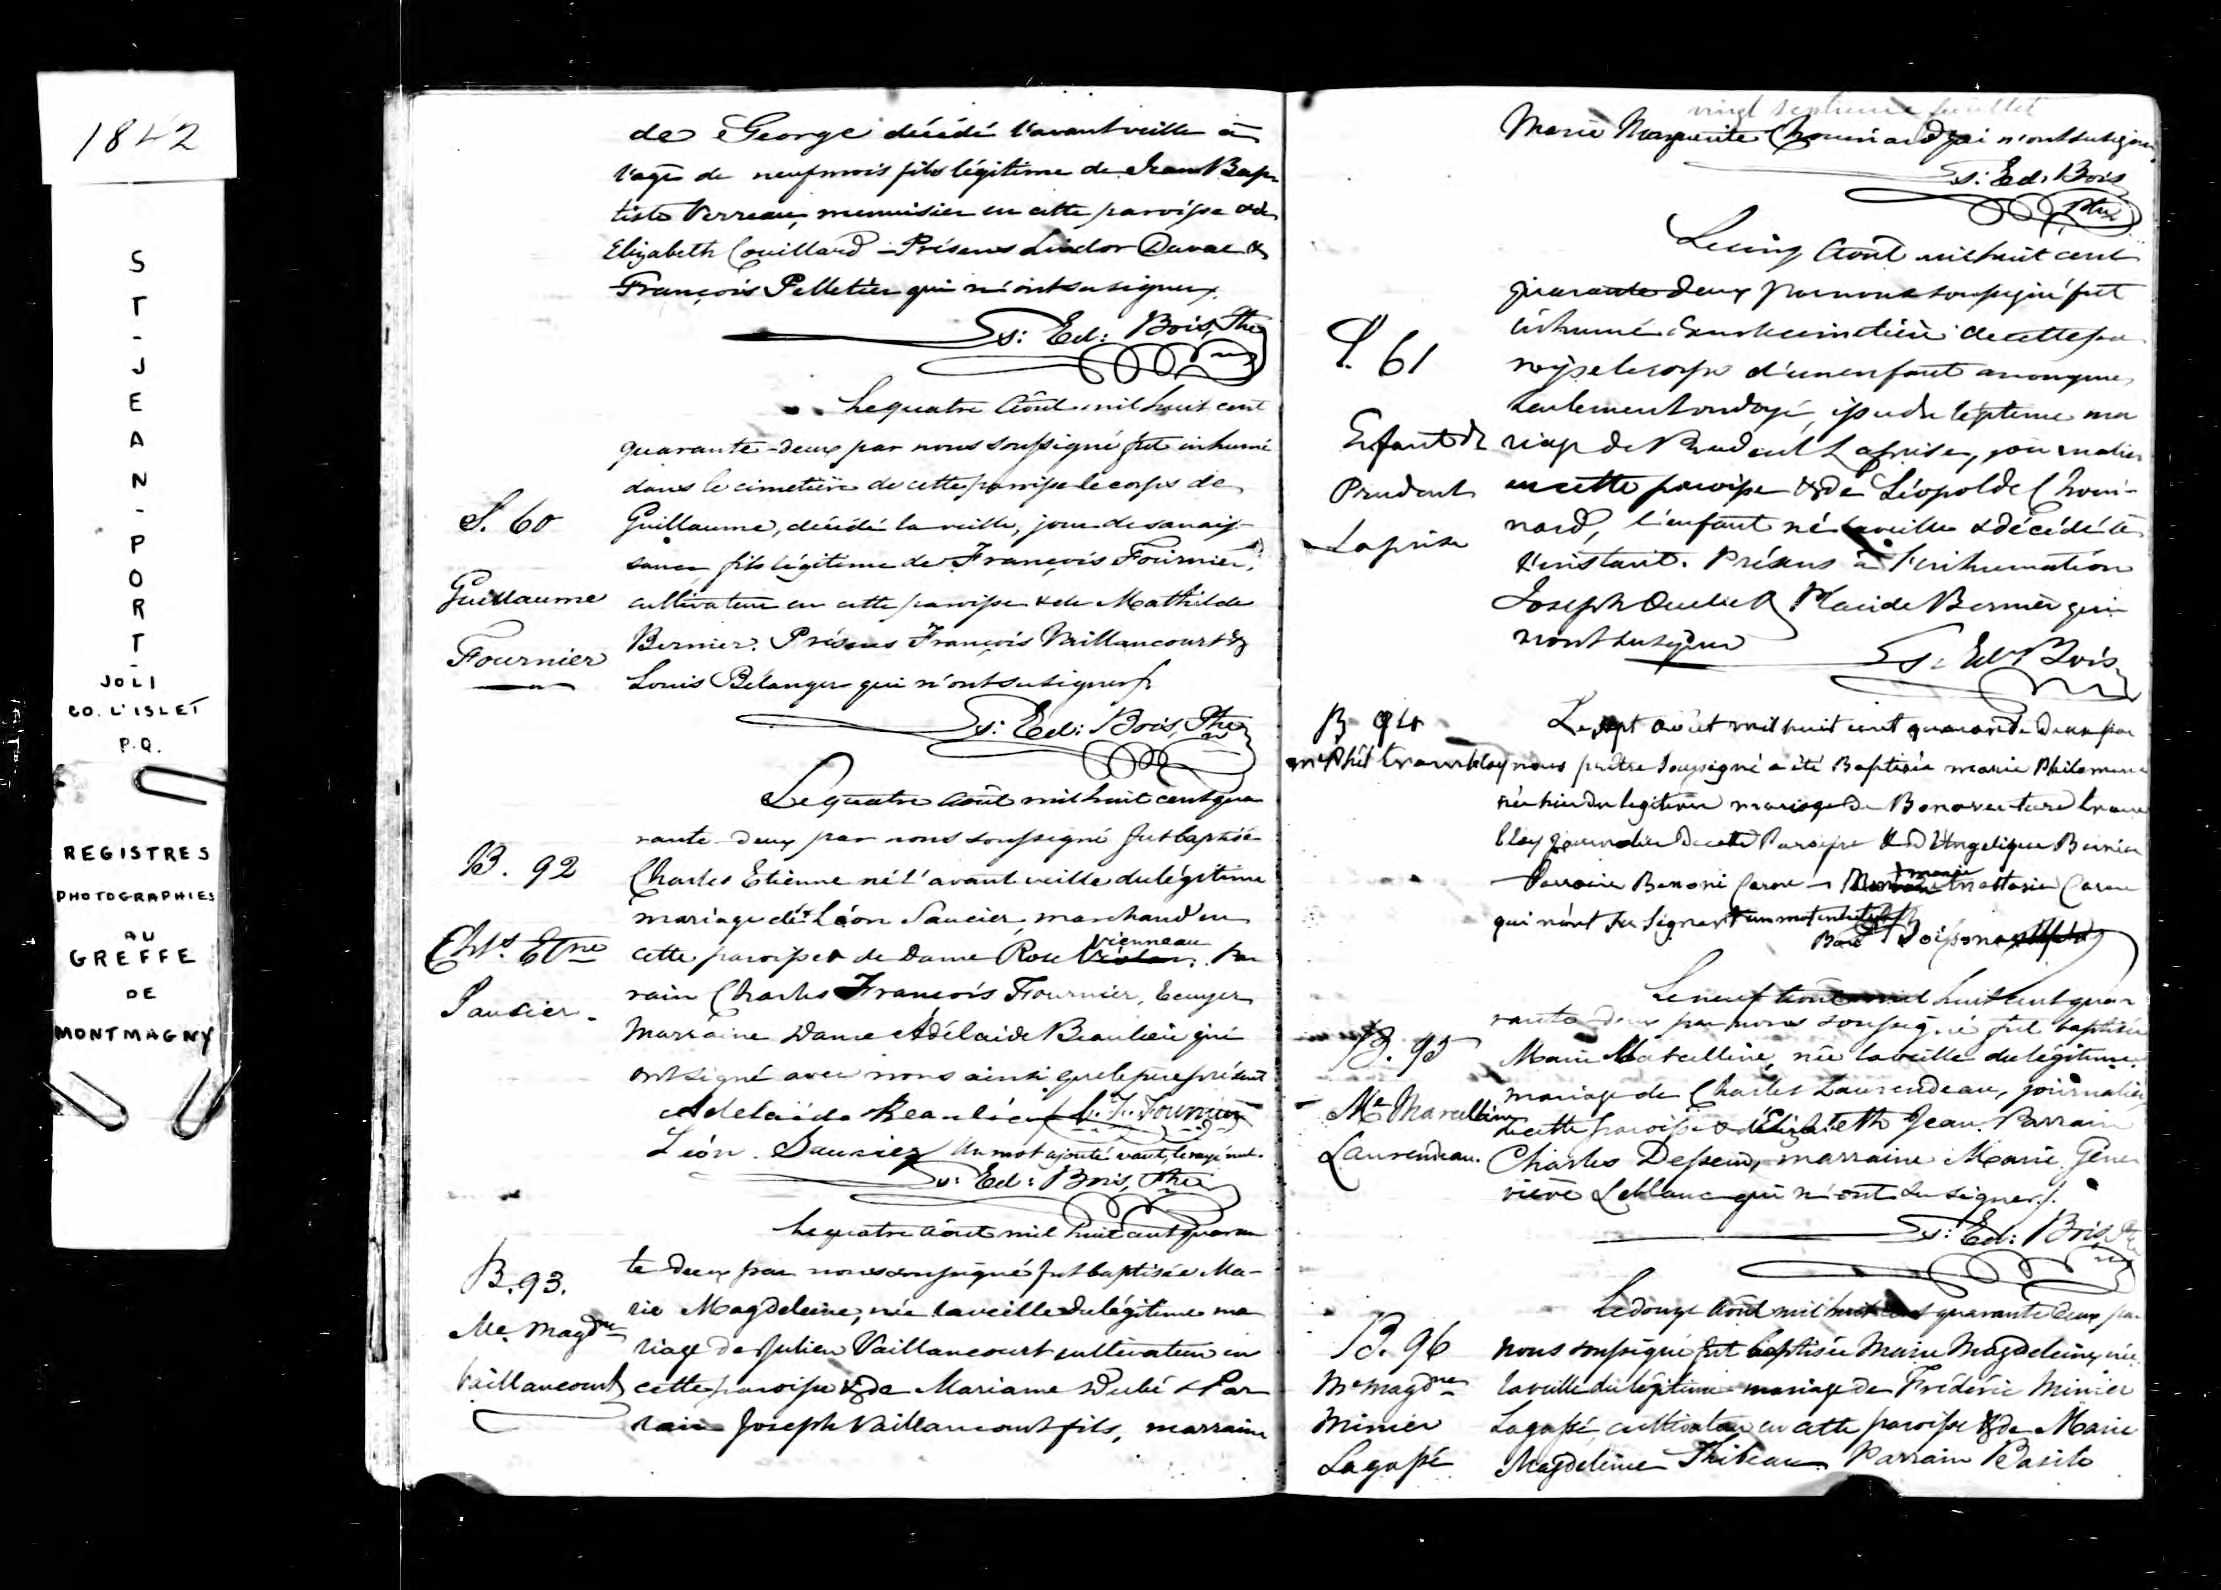 1842
S
T
-
J
E
A
N
-
P
O
R
T
-
JOLI
CO. L'ISLET
P.Q.
REGISTRES
PHOTOGRAPHIES
AU
GREFFE
DE
MONTMAGNY
de George décédé l'avantveille à
l'age de neuf mois fils légitime de Jean Bap
tiste Verreau, menuisier en cette paroisse & de
Elizabeth Couillard - Présens Lindor Duval &
François Pelletier qui n'ont su signer.
Ls: Ed: Bois, Ptre
Le quatre Août mil huit cent
quarante-deux par nous soussigné fut inhumé
dans le cimetière de cette paroisse le corps de
S. 60
Guillaume, décédé la veille, jour de sa nais
sance, fils légitime de François Fournier,
Guillaume
cultivateur en cette paroisse & de Mathilde
Fournier
Bernier. Présens François Vaillancourt &
Louis Bélanger qui n'ont su signer
Ls: Ed: Bois, Ptre
Le quatre Août mil huit cent qua
rante-deux par nous soussigné fut baptisé
B. 92
Charles Etienne né l'avant veille du légitime
mariage de Léon Saucier, marchand en
Chs. Etne
cette paroisse & de Dame Rose vienneau Par
Saucier.
rain Charles François Fournier, Ecuyer
Marraine Dame Adélaide Beaulieu qui
ont signé avec nous ainsi que le pere présent
Adelaïde Beaulieu C. F. Fournier
Léon Saucier Un mot ajouté vaut, le rayé nul.
Ls: Ed: Bois, Ptre
Le quatre Août mil huit cent quaran
B. 93.
te deux par nous soussigné fut baptisée Ma-
rie Magdeleine, née la veille du légitime ma
Me. Magdne
riage de Julien Vaillancourt cultivateur en
Vaillancourt
cette paroisse & de Mariane Dubé & Par
rain Joseph Vaillancourt fils, marraine
vingt septieme feuillet
Marie Marguerite Chouinard qui n'ont su signer
Ls: Ed: Bois
Ptre
Le cinq Août mil huit cent
quarante deux par nous soussigné fut
inhumé dans le cimetière de cette pa
S. 61
roisse le corps d'un enfant anonyme,
seulement ondoyé, issu du légitime ma
Enfant de
riage de Prudent Laprise, journalier
Prudent
en cette paroisse & de Léopolde Choui-
nard, l'enfant né la veille & décédé à
Laprise
l'instant. Présens à l'inhumation
Joseph Ouellet & Placide Bernier qui
n'ont su signer
Ls: Ed: Bois
B 94
Le sept août mil huit cent quarante deux par
me Phil tramblay
nous prêtre soussigné a été Baptisée marie Philomene
née hier du legitime mariage de Bonaventure tram
blay journalier de cette Paroisse & d'Angelique Bernier
Parraine Benoni Caron - marie Caron
qui n'ont su signer un mot
Le neuf Août mil huit cent qua
rante deux par nous soussigné fut baptisée
B. 95
Marie Marcelline, née la veille du légitime
mariage de Charles Laurendeau, journalier
Me Marcelline
de cette paroisse & d'Elizabeth Jean. Parrain
Laurendeau.
Charles Dessein, marraine Marie Gene
viève Leblanc qui n'ont su signer.
Ls: Ed: Bois, Ptre
Le douze Août mil huit cent quarante deux par
B. 96
nous soussigné fut baptisée Marie Magdeleine, née
Me Magdne
la veille du légitime mariage de Frédéric Minier
Minier
Lagassé, cultivateur en cette paroisse & de Marie
Lagassé
Magdeleine Thibeau. Parrain Basile